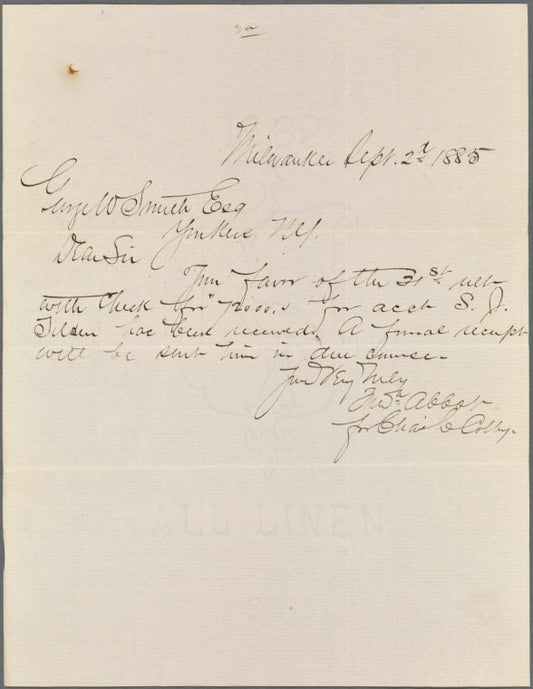 Milwaukee Sept. 2d 1885
George W Smith Esq
Yonkers. NY.
Dear Sir
Your favor of the 31st ult
with check for $12000.00 for acct S. J.
Tilden has been received. A formal receipt
will be sent him in due course.
Yours Very Truly
Abbot
for Chas L Colby.
ALL LINEN